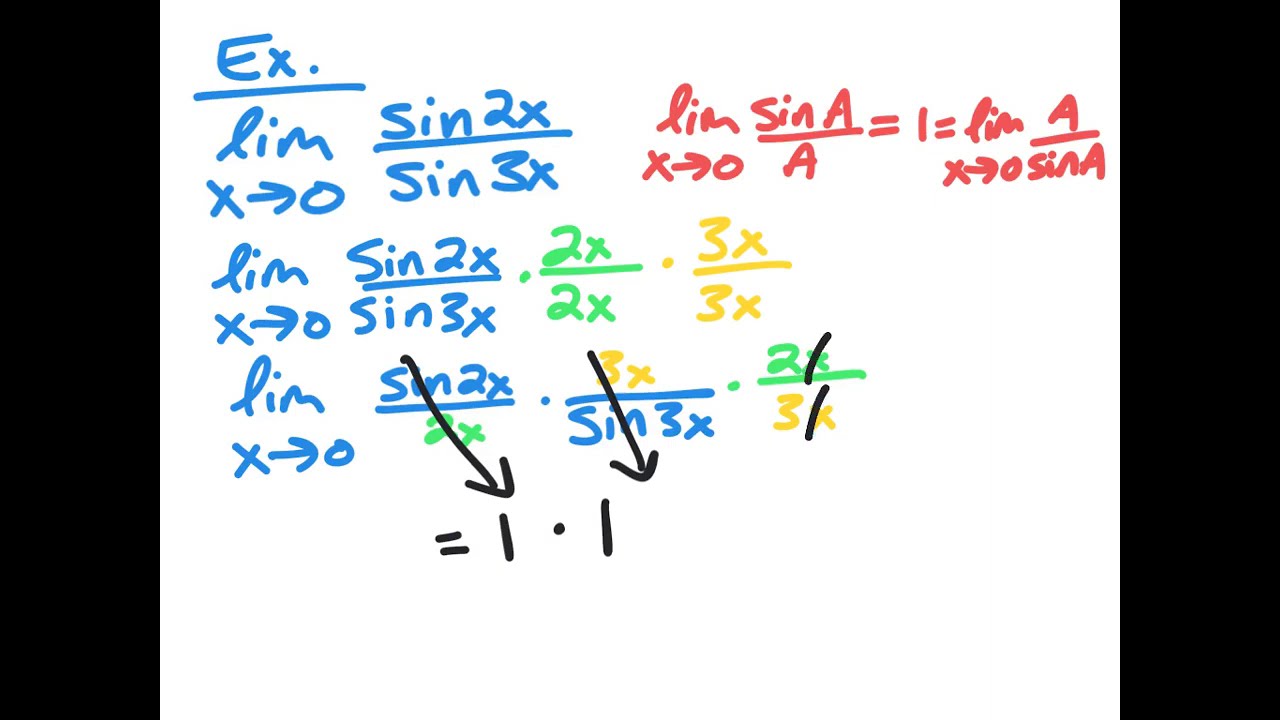 Ex.
lim x→0 sin2x / sin3x
lim x→0 sinA / A = 1 = lim x→0 A / sinA
lim x→0 sin2x / sin3x · 2x / 2x · 3x / 3x
lim x→0 sin2x / 2x · 3x / sin3x · 2x / 3x
= 1 · 1